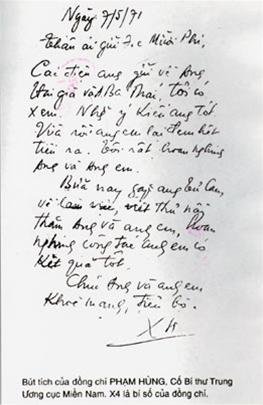 Ngày 7/5/71
Thân ái gửi Mười Phi,
Cái điện anh gửi về Ông
và Ba Thái, tôi có
xem. Nhất ý Kiến anh tốt.
Vừa rồi anh em lại đem hết
tiền ra. Tôi rất hoan nghinh
Ông và ông em.
Bữa nay gặp anh Tư Cam,
về làm việc, viết thơ này
thăm Ông và anh em, hoan
nghinh công tác anh em có
Kết quả tốt.
Chúc Ông và anh em
Khoẻ mạnh, tiến bộ.
X4
Bút tích của đồng chí PHẠM HÙNG, Cố Bí thư Trung
Ương cục Miền Nam. X4 là bí số của đồng chí.